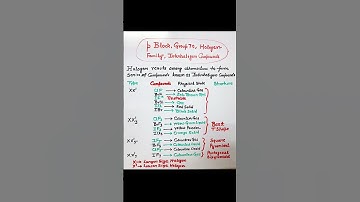 p Block, Group 17, Halogen
Family, Interhalogen Compounds
Halogen reacts among themselves to form
Series of Compounds known as Interhalogen Compounds
Type Compounds Physical State Structure
XX' ClF → Colourless Gas
BrF →
ICl →
IBr → Black Solid
XX'3 ClF3 → Colourless Gas Bent
BrF3 → Yellow Green Liquid T Shape
IF3 → Yellow Powder
ICl3 → Orange Solid
XX'5 IF5 → Colourless Gas Square
BrF5 → Colourless Liquid Pyramidal
ClF5 → Colourless Liquid
XX'7 IF7 → Colourless Gas Pentagonal
Bipyramidal
X → Larger Size Halogen
X' → Smaller Size Halogen